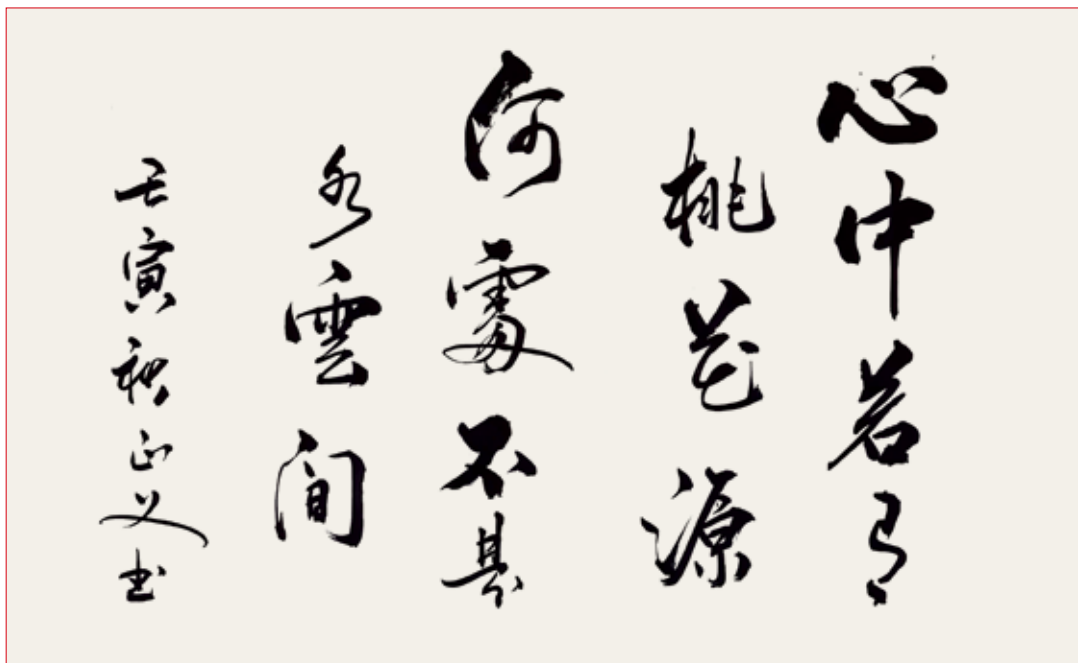 心中若有
桃花源
何處不是
水雲间
壬寅秋正义书